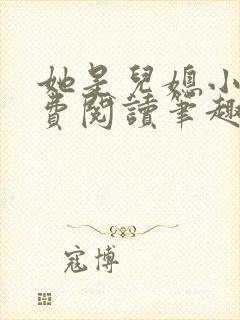 她是兒媳小
費閱讀筆趣
寇博